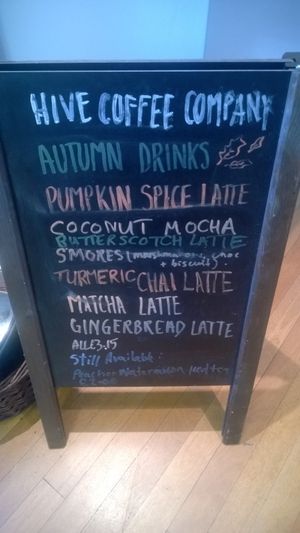 HIVE COFFEE COMPANY
AUTUMN DRINKS
PUMPKIN SPICE LATTE
COCONUT MOCHA
BUTTERSCOTCH LATTE
S'MORES (marshmallow, choc
+ biscuit).
TURMERIC CHAI LATTE
MATCHA LATTE
GINGERBREAD LATTE
ALL £3.15
Still Available:
Watermelon